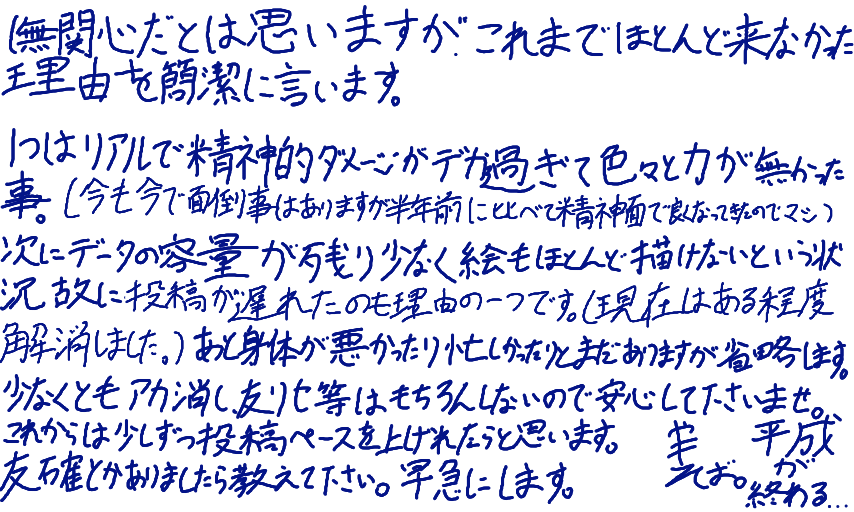 (無関心だとは思いますが、これまでほとんど来なかった
理由を簡潔に言います。
1つはリアルで精神的ダメージがデカ過ぎて色々と力が無かった
事。(今も今で面倒事はありますが半年前に比べて精神面で良くなってきたのでマシ)
次にデータの容量が残り少なく絵もほとんど描けないという状
況故に投稿が遅れたのも理由の一つです。(現在はある程度
解消しました。)あと身体が悪かったり忙しかったりとまだありますが省略します。
少なくともアカ消し、友リセ等はもちろんしないので安心して下さいませ。
これからは少しずつ投稿ペースを上げれたらと思います。
友確とかありましたら教えて下さい。早急にします。
やきそば。
平成
が
終わる…